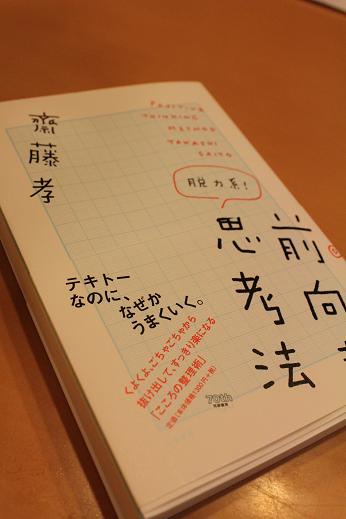 齋藤孝
POSITIVE
THINKING
METHOD
TAKASHI
SAITO
脱力系!
前向き
思考法
テキトー
なのに、
なぜか
うまくいく。
くよくよ、ごちゃごちゃから
抜け出して、すっきり楽になる
「こころの整理術」
定価(本体価格1300円+税)
70th
筑摩書房